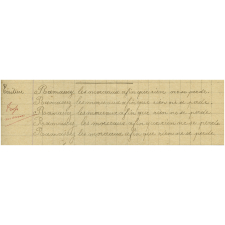 Ecriture
Ramassez les morceaux afin que rien ne se perde.
Ramassez les morceaux afin que rien ne se perde.
Ramassez les morceaux afin que rien ne se perde.
Ramassez les morceaux afin que rien ne se perde.
Ramassez les morceaux afin que rien ne se perde.